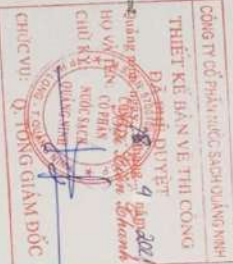 CÔNG TY CỔ PHẦN NƯỚC SẠCH QUẢNG NINH
THIẾT KẾ BẢN VẼ THI CÔNG
ĐÃ PHÊ DUYỆT
Quảng Ninh, ngày 28 tháng 9 năm 202
HỌ VÀ TÊN:
CHỮ KÝ:
CỔ PHẦN
NƯỚC SẠCH
QUẢNG NINH
CHỨC VỤ: Q. TỔNG GIÁM ĐỐC